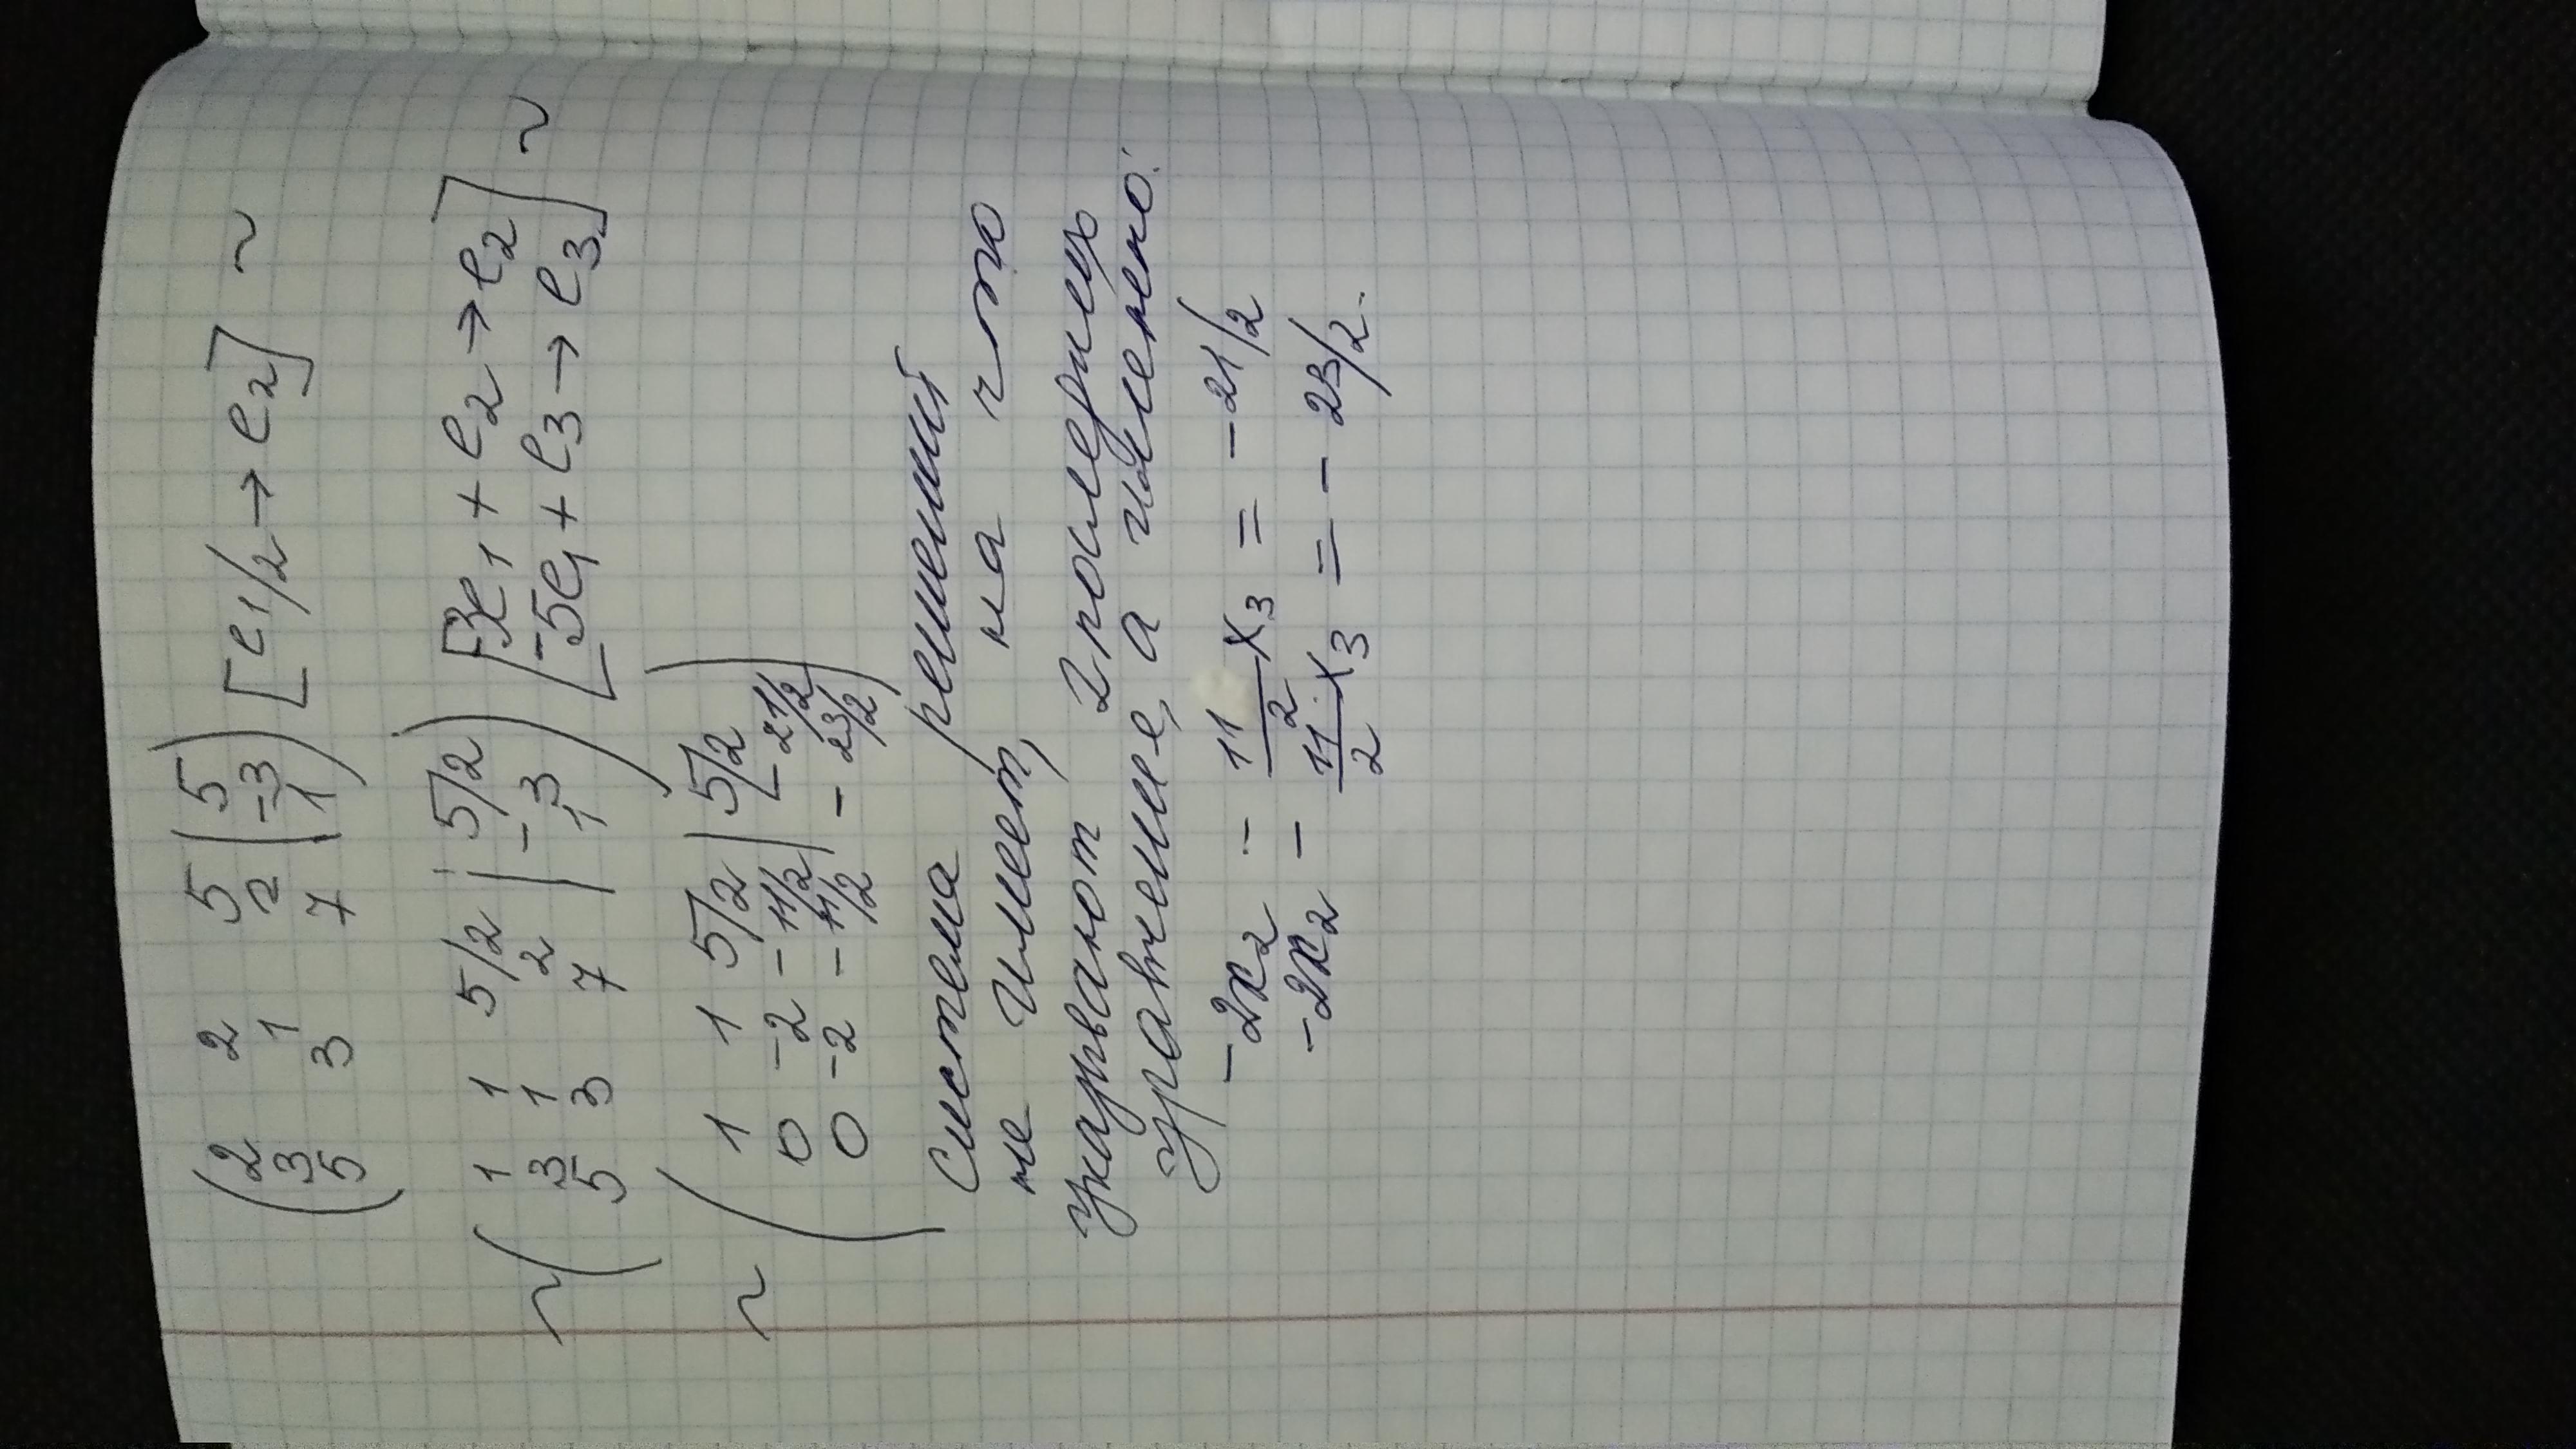 ( 2 2 5 | 5 ) [e1/2 → e2] ~
3 1 2 | -3
5 3 7 | 1
~ ( 1 1 5/2 | 5/2 ) [-3e1 + e2 → e2] ~
3 1 2 | -3 [-5e1 + e3 → e3]
5 3 7 | 1
~ ( 1 1 5/2 | 5/2 )
0 -2 -11/2 | -21/2
0 -2 -11/2 | -23/2
Система решений
не имеет, на что
указывают 2 последних
уравнение, а именно:
-2x2 - 11/2 x3 = -21/2
-2x2 - 11/2 x3 = -23/2.